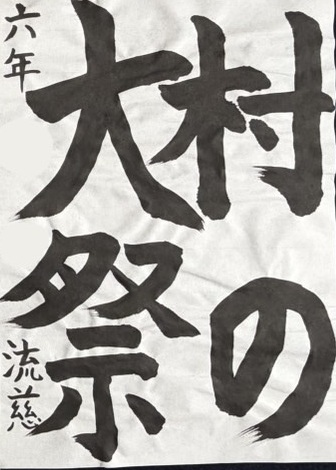 村の
大祭
六年 流慈